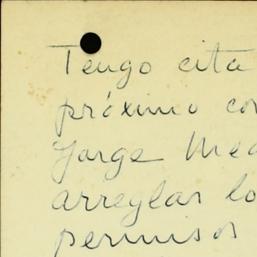 Tengo cita
próximo co
Jorge Med
arreglar lo
permisos